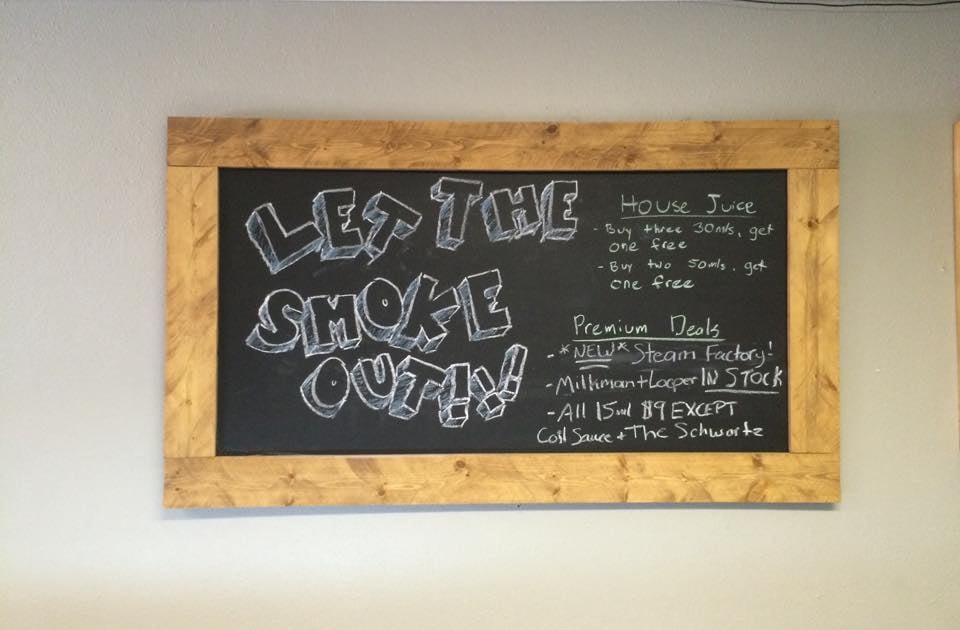 LET THE
SMOKE
OUT!!!
House Juice
- Buy three 30mls, get
one free
- Buy two 50mls, get
one free
Premium Deals
- *NEW* Steam Factory!
- Milkman + Looper IN STOCK
- All 15ml $9 EXCEPT
Sauce + The Schwartz